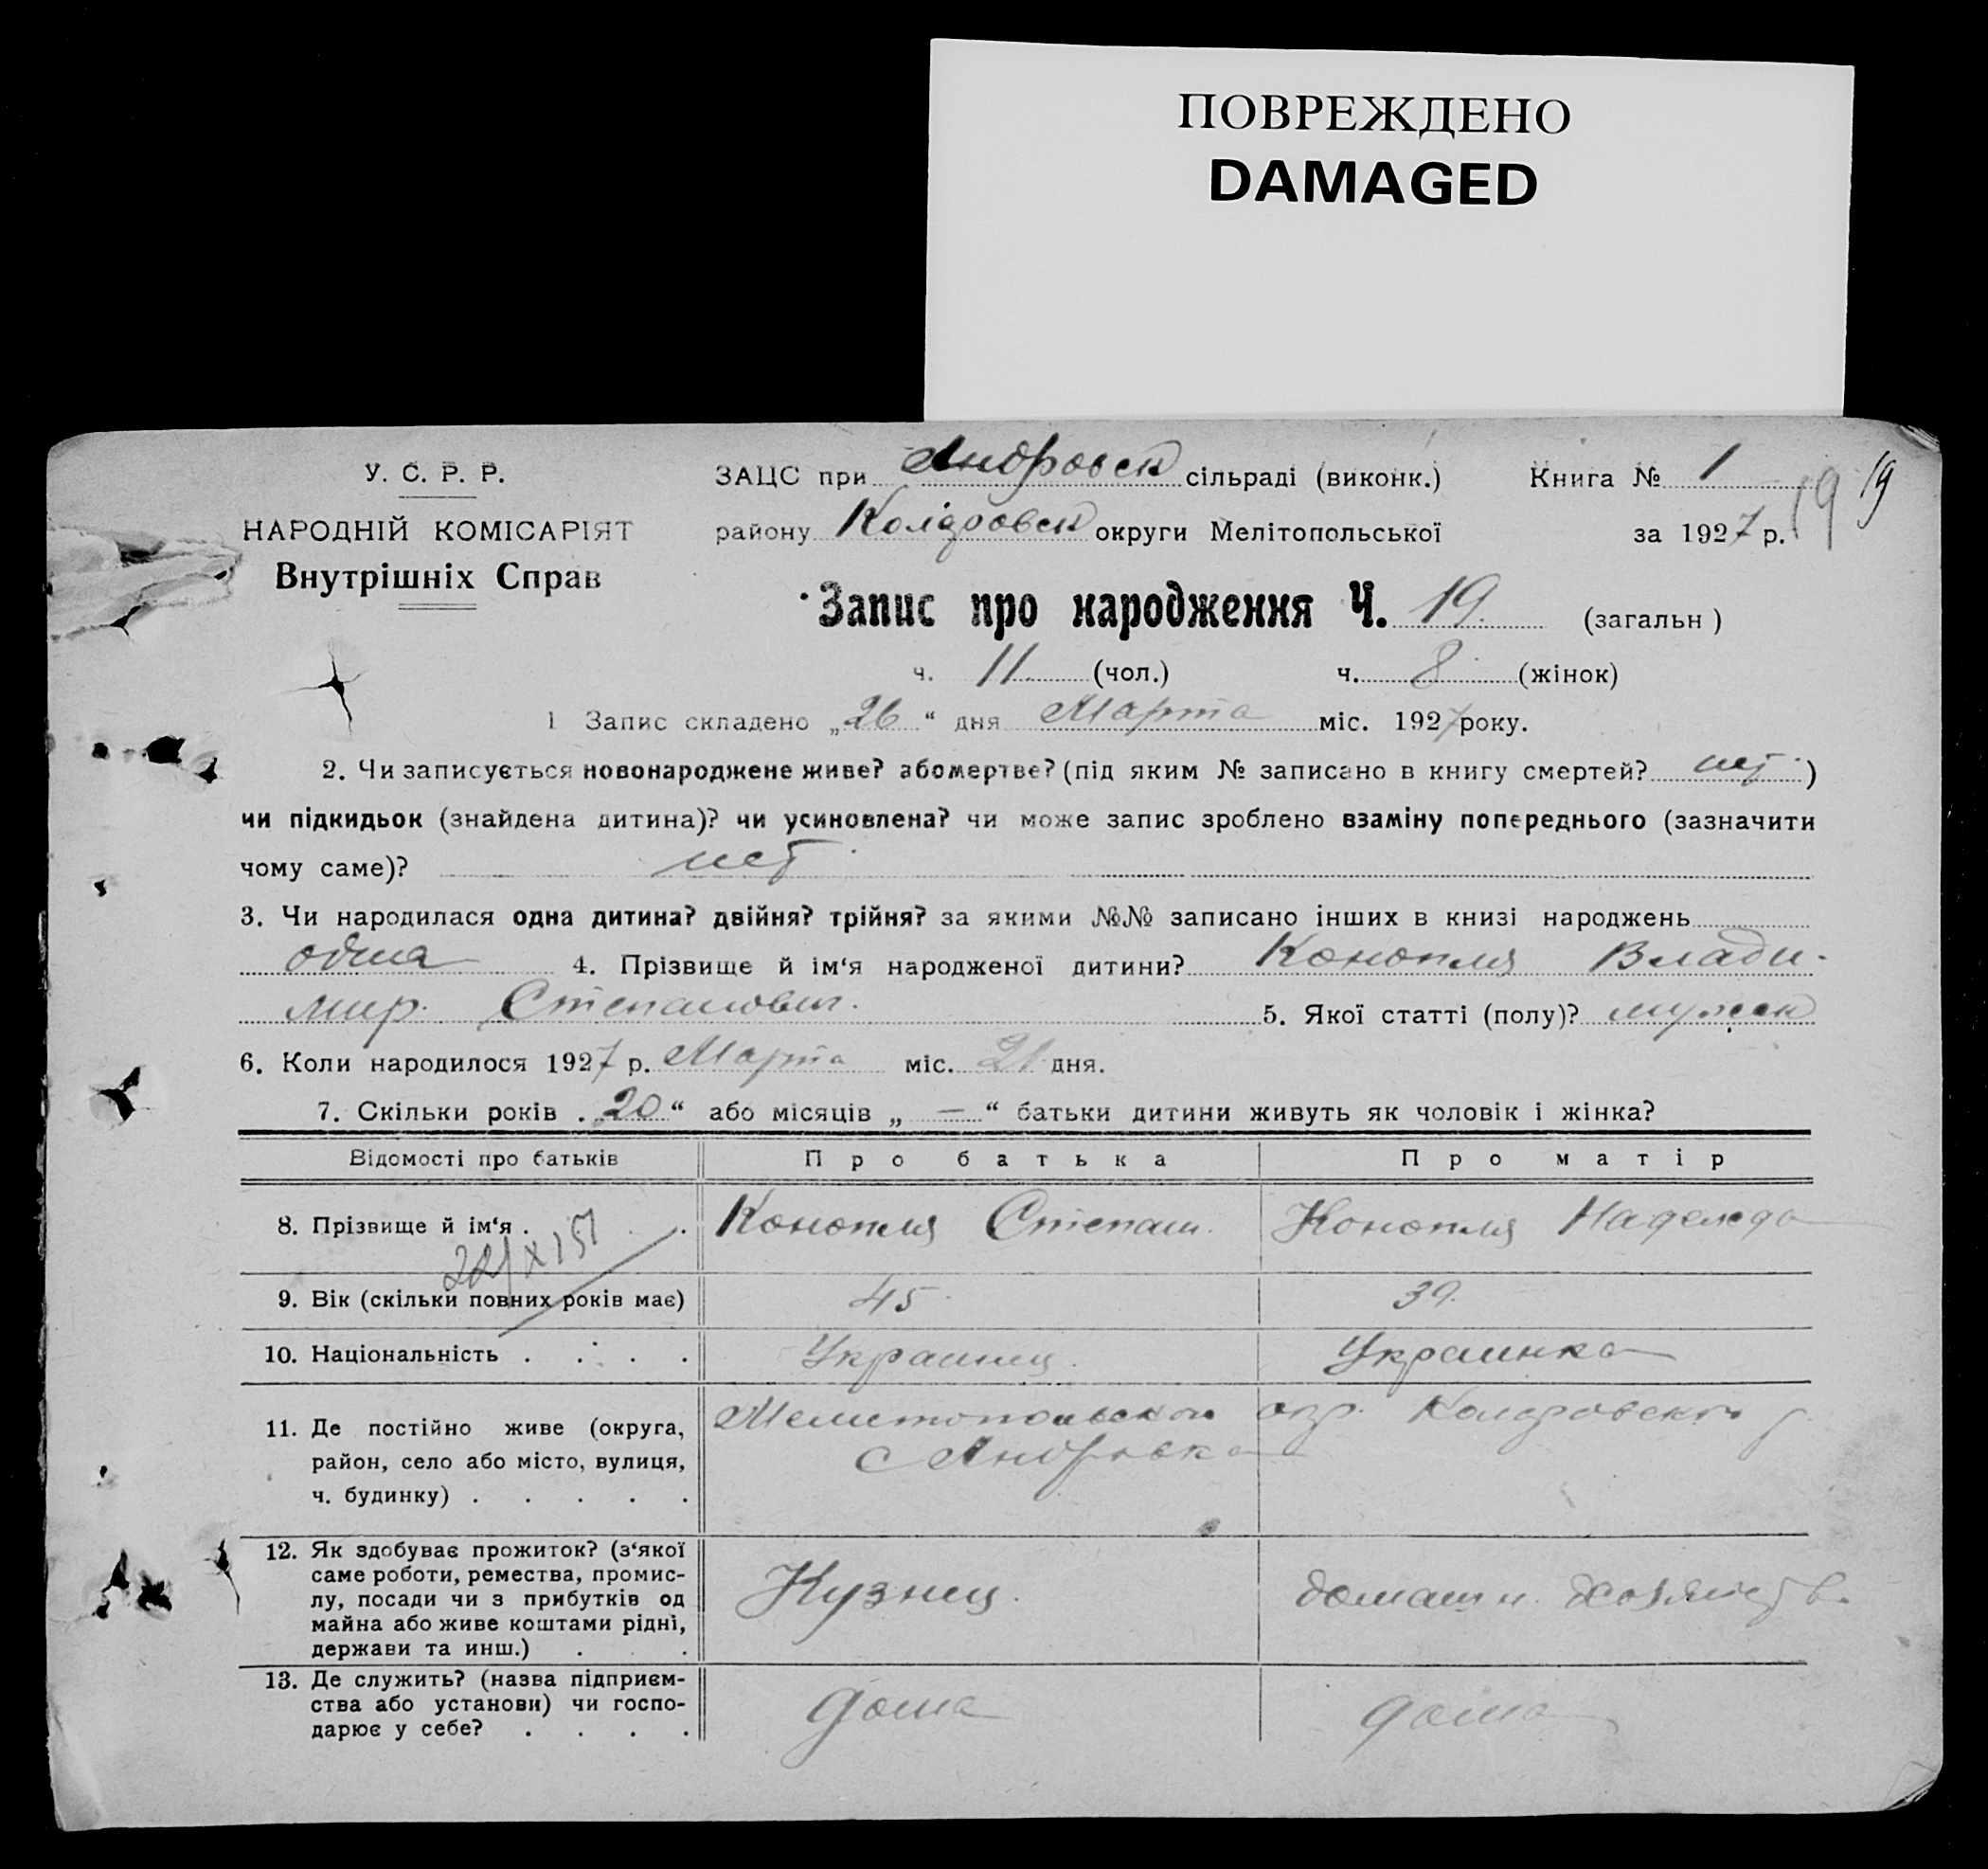 ПОВРЕЖДЕНО
DAMAGED
У. С. Р. Р.
НАРОДНІЙ КОМІСАРІЯТ
Внутрішніх Справ
ЗАЦС при Андровск сільраді (виконк.) Книга № 1
19 19
району округи Мелітопольської за 1927 р.
Запис про народження Ч. 19. (загальн)
ч. 11 (чол.) ч. 8 (жінок)
1 Запис складено „26“ дня Марта міс. 1927 року.
2. Чи записується новонароджене живе? або мертве? (під яким № записано в книгу смертей? нет)
чи підкидьок (знайдена дитина)? чи усиновлена? чи може запис зроблено взаміну попереднього (зазначити
чому саме)? нет
3. Чи народилася одна дитина? двійня? трійня? за якими №№ записано інших в книзі народжень
одна 4. Прізвище й ім‘я народженої дитини? Конопля Влади-
мир Степанович. 5. Якої статті (полу)? мужск
6. Коли народилося 1927 р. Марта міс. 21 дня.
7. Скільки років „20“ або місяців „—“ батьки дитини живуть як чоловік і жінка?
Відомості про батьків Про батька Про матір
8. Прізвище й ім‘я . . . Конопля Степан. Конопля Надежда
9. Вік (скільки повних років має) 45 39.
10. Національність . . . . Украинец. Украинка
11. Де постійно живе (округа, Мелитопольской окр. р.
район, село або місто, вулиця, с Андровка
ч. будинку) . . . . .
12. Як здобуває прожиток? (з‘якої
саме роботи, ремества, промис-
лу, посади чи з прибутків од Кузнец. домашн. хозяйств.
майна або живе коштами рідні,
держави та инш.) . .
13. Де служить? (назва підприєм-
ства або установи) чи госпо- дома дома
дарює у себе? . . . .